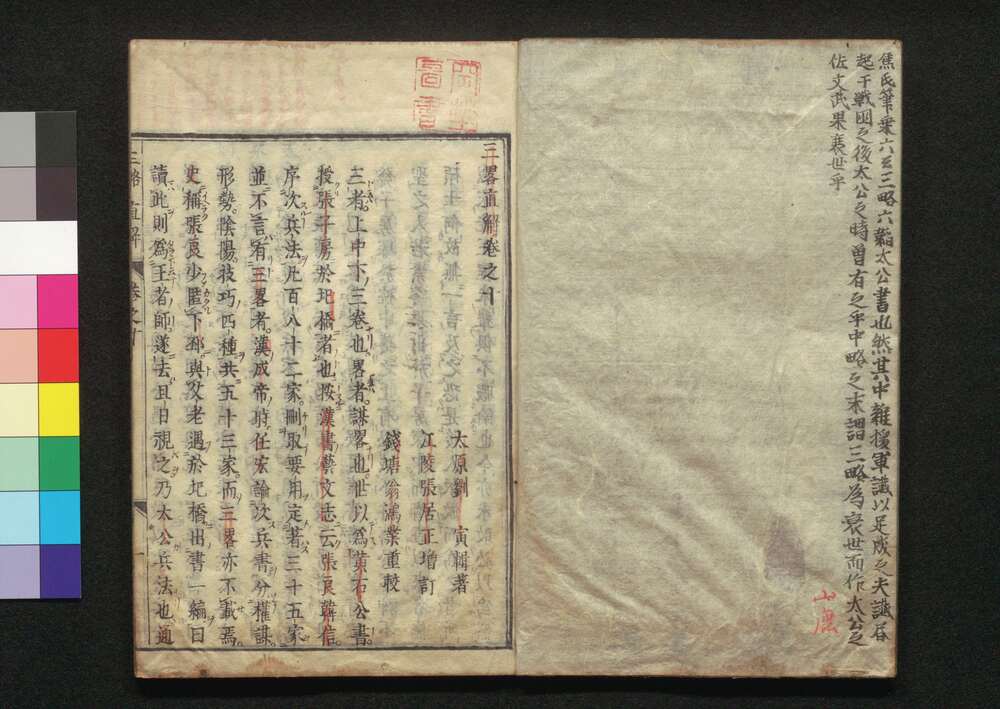 焦氏筆乗六云三略六韜太公書也然其中雜援軍讖以足成之夫讖書
起于戦国之後太公之時曽有之乎中略之末謂三略為衰世而作太公之
佐文武果衰世乎
山鹿
三畧直解卷之十
太原劉寅輯著
江陵張居正增訂
錢塘翁鴻業重較
三者。上中下三卷也畧者。謀畧也世以為黄石公書。
授張子房於圯橋者也按漢書藝文志云張良韓信
序次兵法凡百八十二家刪取要用定著三十五家
並不言有三畧者。漢成帝時任宏論次兵書分權謀。
形勢。陰陽技巧四種共五十三家而三畧亦不載焉
史稱張良少匿下邳與父老遇於圯橋出書一編曰
讀此則為王者師。遂去且日視之乃太公兵法也通
三略直解 卷之十 一